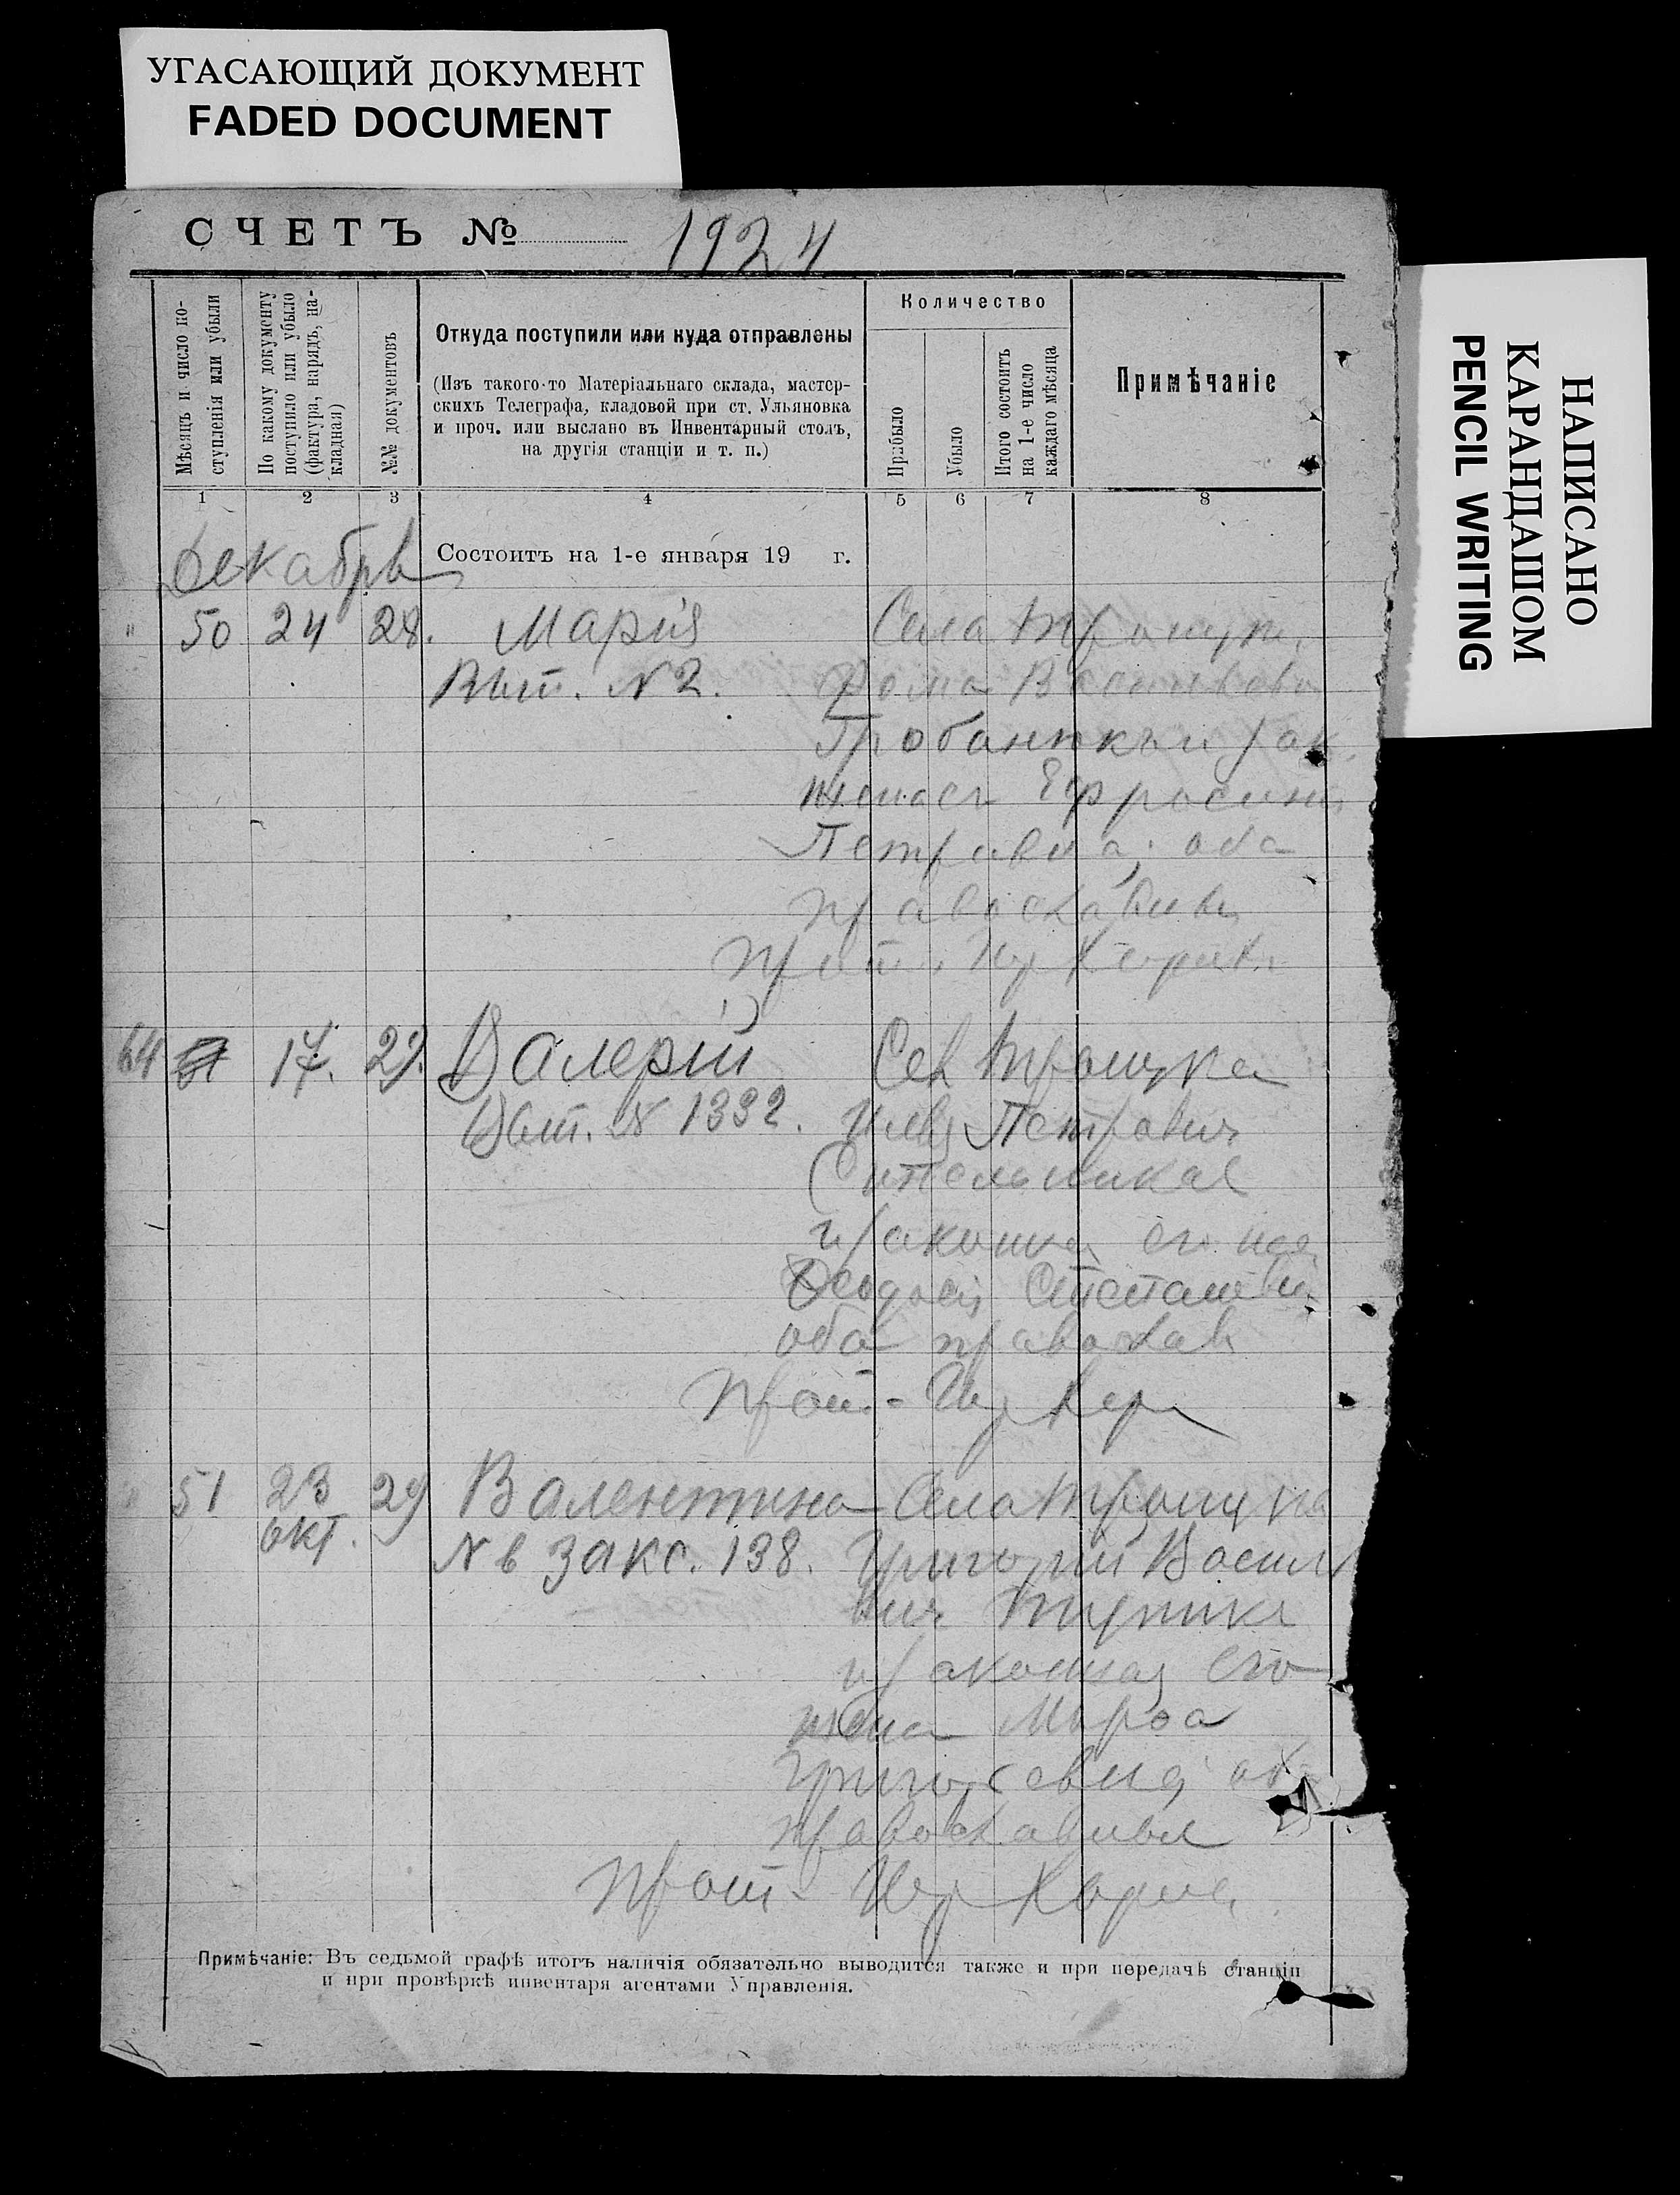 УГАСАЮЩИЙ ДОКУМЕНТ
FADED DOCUMENT
НАПИСАНО
КАРАНДАШОМ
PENCIL WRITING
СЧЕТЪ № 1924
Мѣсяцъ и число поступленія или убыли
По какому документу поступило или убыло (фактура, нарядъ, накладная)
№№ документовъ
Откуда поступили или куда отправлены
(Изъ такого-то Матеріальнаго склада, мастер-
скихъ Телеграфа, кладовой при ст. Ульяновка
и проч. или выслано въ Инвентарный столъ,
на другія станціи и т. п.)
Количество
Прибыло
Убыло
Итого состоитъ на 1-е число каждаго мѣсяца
Примѣчаніе
1 2 3 4 5 6 7 8
Декабрь
Состоитъ на 1-е января 19 г.
" 50 24 28. Марія Села
Вып. N 2. Фома
жена его Ефросинія
Петровна; оба
православныи
Прот.
64 17. 29. Валерій Сел Троицка
Вып. № 1332. Илья Петрович
Синельников
и законная его жена
Феодосія Степановн
оба православ
Прот.
" 51 23 29 Валентина Села Троицка
окт.
N в закс. 138. Григорій Василь
вич
и законная его
жена
Григорьевна оба
православныи
Прот.
Примѣчаніе: Въ седьмой графѣ итогъ наличія обязательно выводится также и при передачѣ станціи
и при провѣркѣ инвентаря агентами Управленія.